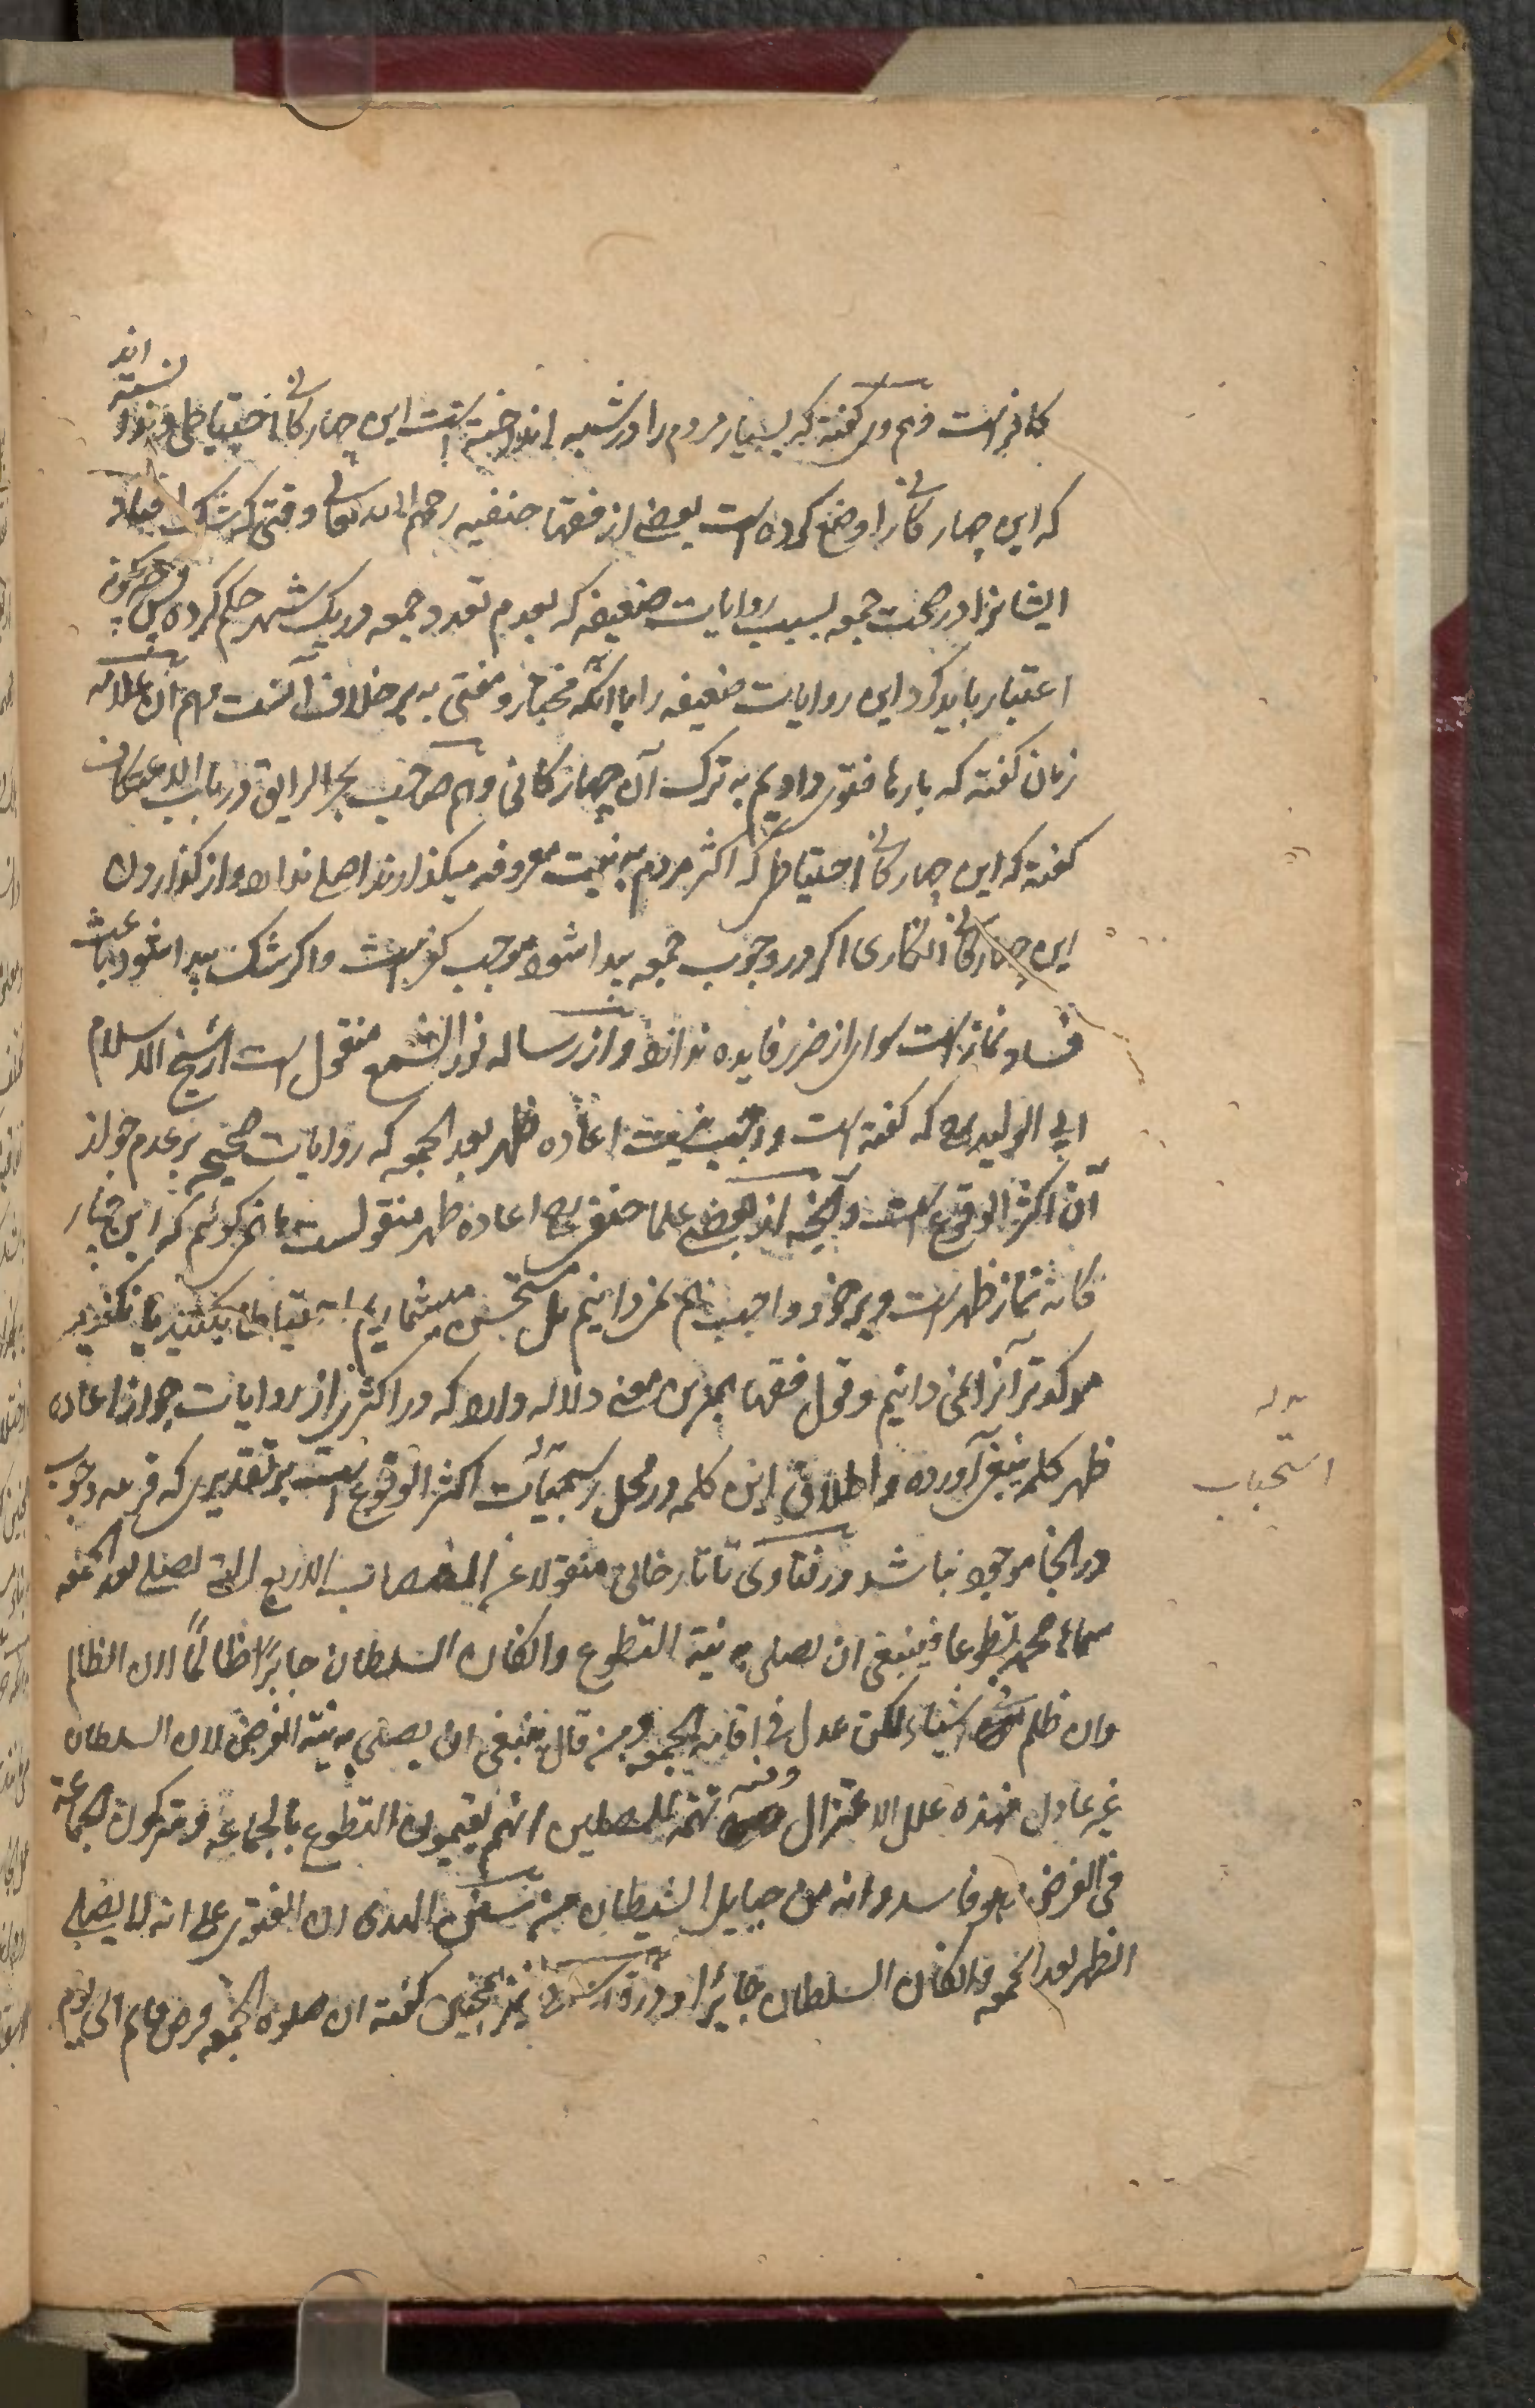 کافر است و هم وی گفته که بسیار مردم را در شبه انداخته است این چهارگانی احتیاطی و ندانسته اند
که این چهارگانی را وضع کرده است بعضی از فقها حنفیه رحمهم الله تعالی وقتی که شک افتاد
ایشانرا در صحت جمعه بسبب روایات ضعیفه که بعدم تعدد جمعه در یک شهر حکم کرده پس چگونه
اعتبار باید کرد این روایات ضعیفه را با آنکه مختار و مفتی به بر خلاف آنست و هم آن علامه
زمان گفته که بارها فتوی دادیم به ترک آن چهارگانی و هم صاحب بحر الرایق در باب الاعتکاف
گفته که این چهارگانی احتیاطی که اکثر مردم به نیت معروفه میگذارند اصلی ندارد و از گذاردن
این چهارگانی انکاری اگر در وجوب جمعه پیدا شود موجب کفر است و اگر شک پیدا شود باعث
فساد نماز است سوای از ضرر فایده ندارد و از رساله نور الشمع منقول است از شیخ الاسلام
ابی الولید که گفته است واجب نیست اعاده ظهر بعد الجمعه که روایات صحیح بر عدم جواز
آن اکثر الوقوع است و آنچه از بعضی علما حنفی اعاده ظهر منقولست ما نمی گوئیم که این چهار
گانه نماز ظهر است و بر خود واجب هم نمی دانیم بل مستحسن میشماریم احتیاطا بکنند یا نکنند
موکدتر آنرا نمی دانیم و قول فقها بهمین معنی دلاله دارد که در اکثر از روایات جواز اعاده
ظهر کلمه ینبغی آورده و اطلاق این کلمه در محل مستحبات اکثر الوقوع است بر تقدیری که قرینه وجوب
در آنجا موجود نباشد و در فتاوی تاتارخانی منقولا عن النصاب الاربع التی یصلی بعد الجمعه
سماها محمد تطوعا فینبغی ان یصلی به نیة التطوع وان کان السلطان جایرا ظالمًا لان الظالم
وان ظلم فی اشیاء لکن عدل فی اقامة الجمعه ومن قال ینبغی ان یصلی به نیة الفرض لان السلطان
غیر عادل فهذه علل الاعتزال وفیه تهمة للمصلین انهم یقیمون التطوع بالجماعه ویترکون الجماعة
فی الفرض وهو فاسد وانه من حبایل الشیطان من سنن الهدی لان الفتوی علی انه لا یصلی
الظهر بعد الجمعه وان کان السلطان جائرا و نیز همچنین گفته ان صلوة الجمعه فرض دایم الی یوم
استحباب